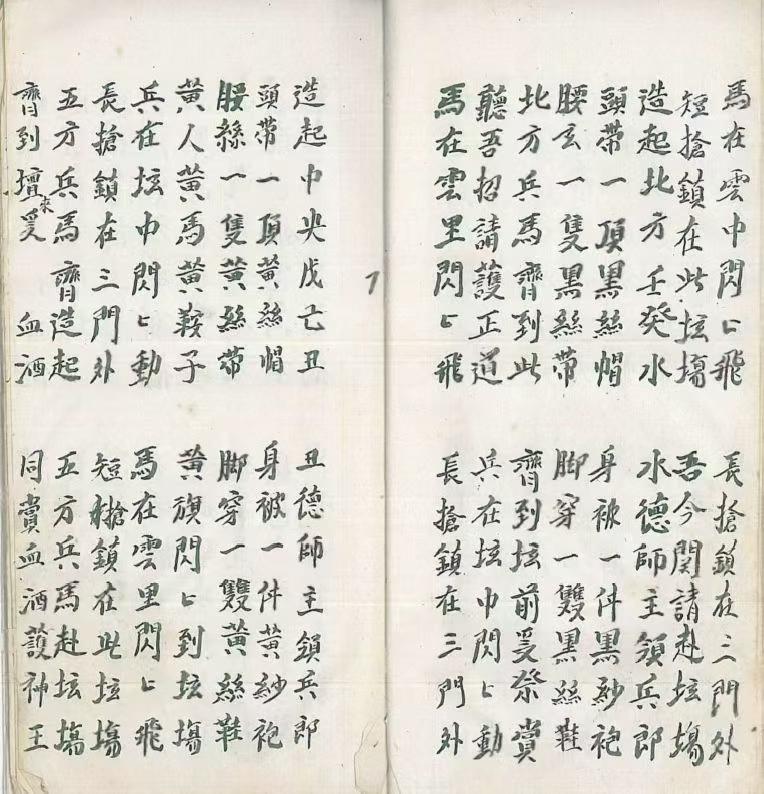 馬在雲中閃〻飛 長搶鎮在三門外
短搶鎮在此坛塲 吾今関請赴坛塲
造起北方壬癸水 水德師主領兵郎
頭帶一頂黑絲帽 身被一件黑紗袍
腰玄一隻黑絲帶 脚穿一雙黑絲鞋
北方兵馬齊到此 齊到坛前爰祭賞
聽吾招請護正道 兵在坛中閃〻動
馬在雲里閃〻飛 長搶鎮在三門外
7
造起中央戊亡丑 丑德師主領兵郎
頭帶一頂黃絲帽 身被一件黃紗袍
腰絲一隻黃絲帶 脚穿一雙黃絲鞋
黃人黃馬黃鞍子 黃旗閃〻到坛塲
兵在坛中閃〻動 馬在雲里閃〻飛
長搶鎮在三門外 短搶鎮在此坛塲
五方兵馬齊造起 五方兵馬赴坛塲
齊到壇來爰血酒 同賞血酒護神王